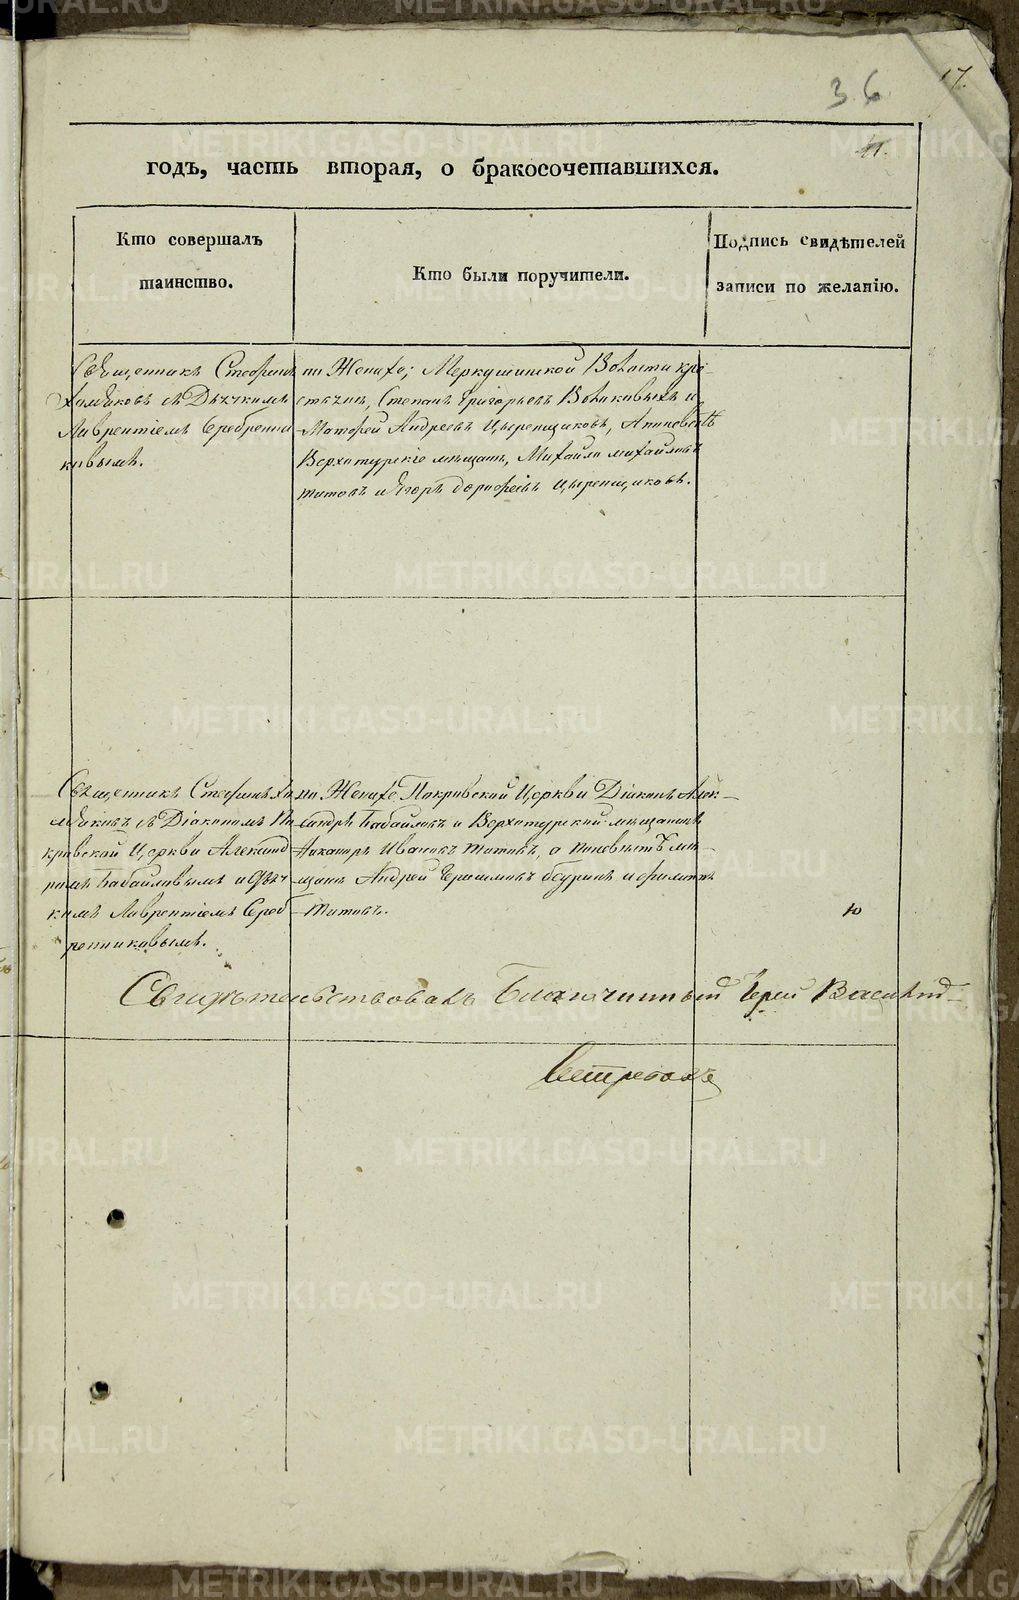 36
17.
годъ, часть вторая, о бракосочетавшихся.
Кто совершалъ
таинство.
Кто были поручители.
Подпись свидѣтелей
записи по желанію.
Священникъ Стефанъ
съ Дьячкомъ
Лаврентіемъ Серебренни
ковымъ.
по женихе; Меркушинской Волости кре-
стьяне, Степанъ Григорьевъ и
Матфей Андреевъ Цыренщиковъ, А по невестѣ
Верхотурскіе мѣщане, Михайло Михайловъ
Титовъ и Егоръ Дорофеевъ Цыренщиковъ.
Священникъ Стефанъ
съ Діакономъ По
кровской Церкви Александ
ромъ Бабайловымъ и Дьяч
комъ Лаврентіемъ Сереб
ренниковымъ.
по женихе Покровской Церкви Діаконъ Алек-
сандръ Бабайловъ и Верхотурской мещанинъ
Никаноръ Ивановъ Титовъ, а по невѣстѣ ме-
щане Андрей Герасимовъ и Филиппъ
Титовъ.
Свидѣтельствовалъ Благочинный Іерей Василій